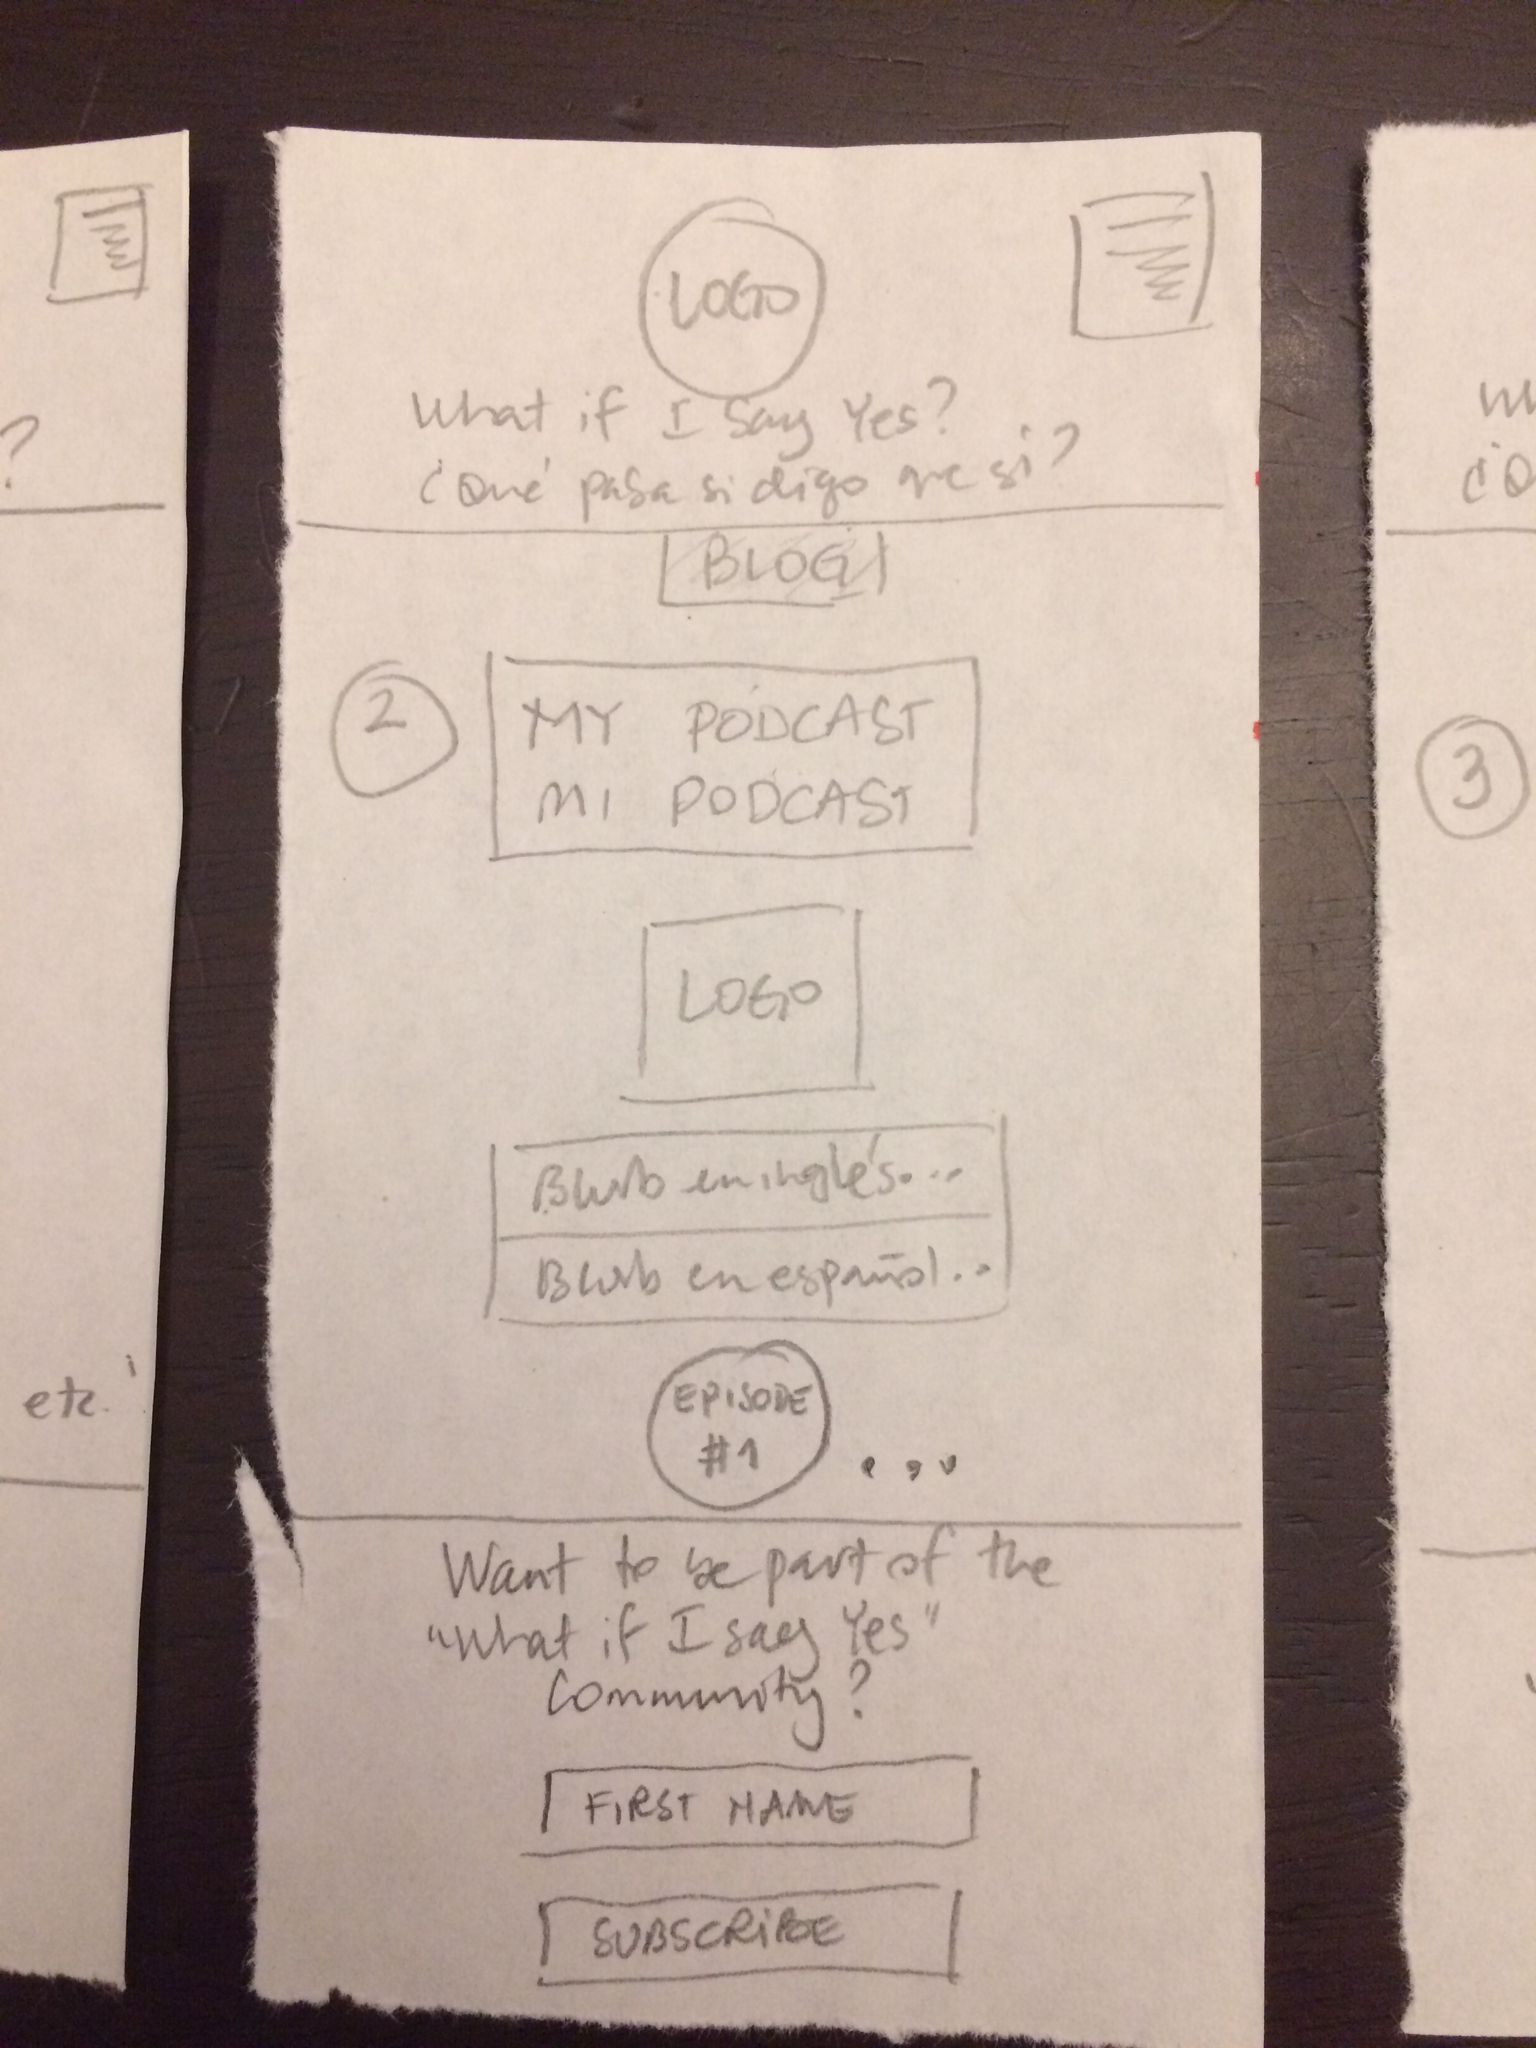 LOGO
What if I say Yes?
¿Qué pasa si digo que si?
BLOG
2
MY PODCAST
MI PODCAST
LOGO
Blurb en inglés...
Blurb en español...
EPISODE
#1 ...
Want to be part of the
"What if I say Yes"
Community?
FIRST NAME
SUBSCRIBE
?
etc.
3